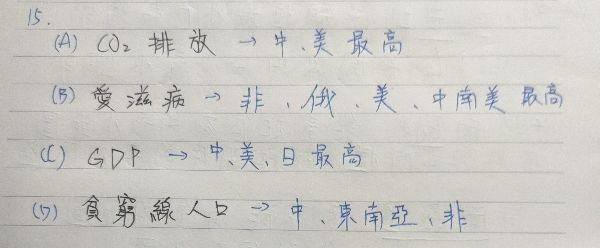 15.
(A) CO₂ 排放 → 中、美最高
(B) 愛滋病 → 非、俄、美、中南美最高
(C) GDP → 中、美、日最高
(D) 貧窮線人口 → 中、東南亞、非